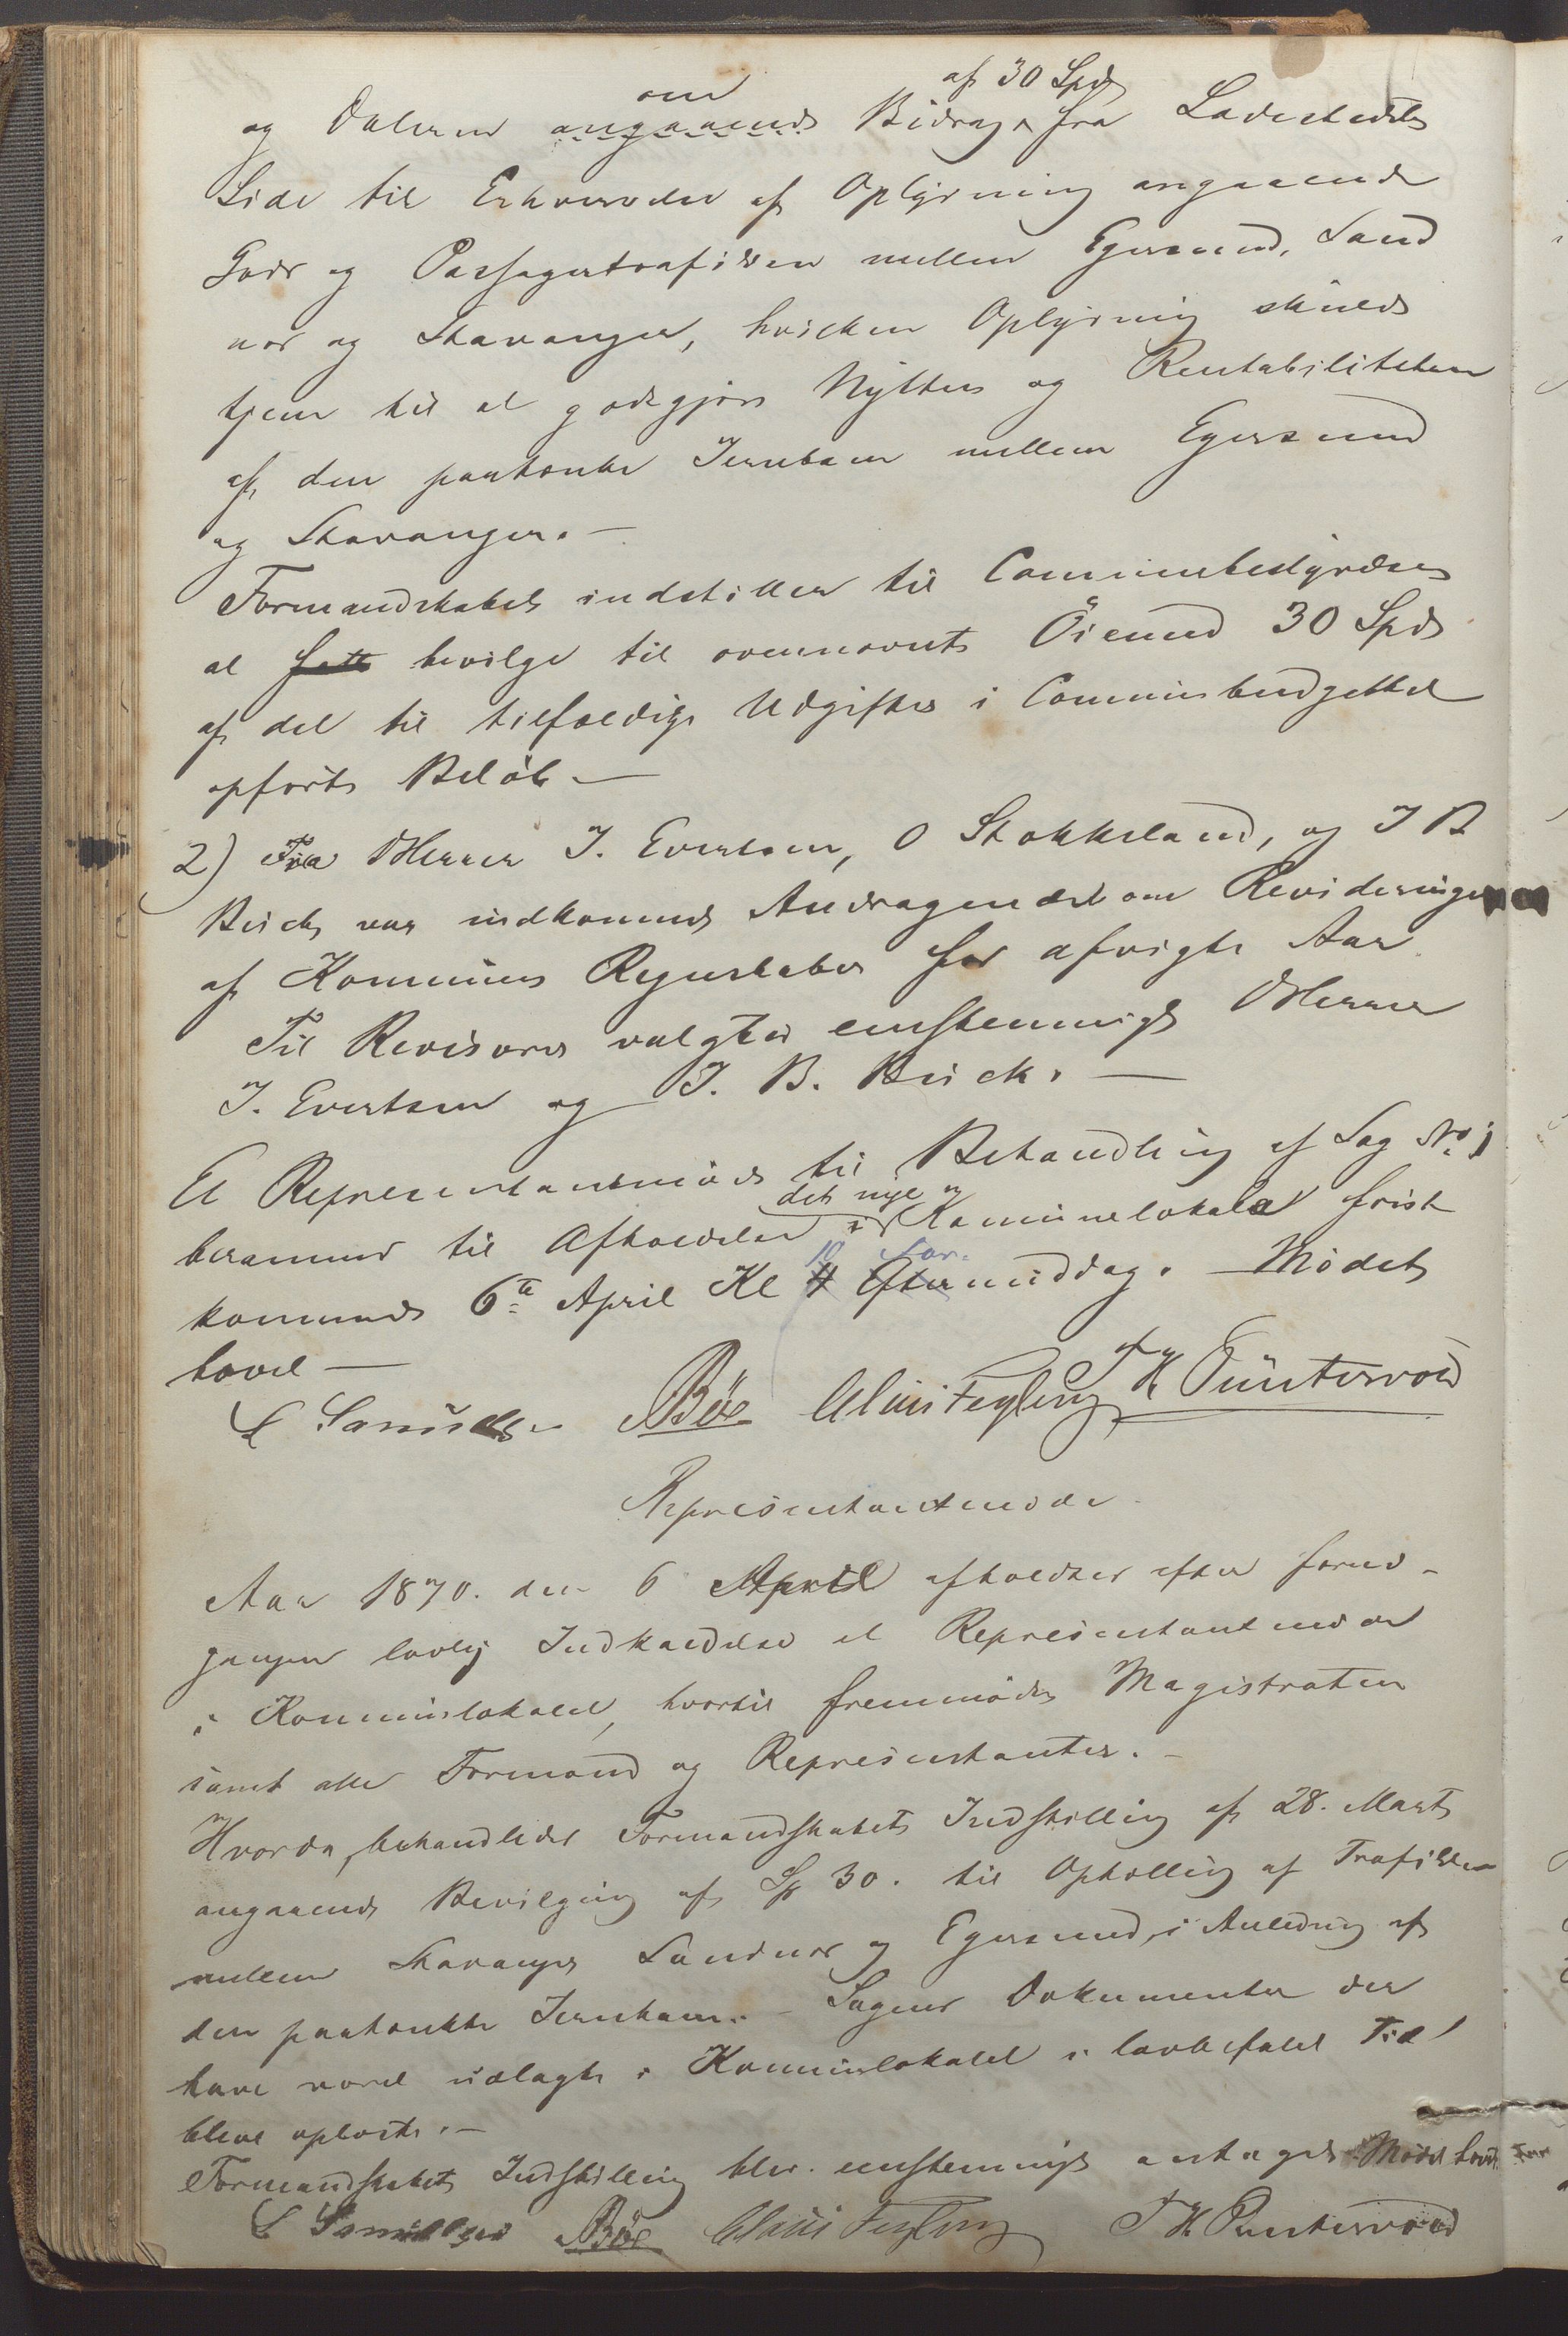 og Dalerne om angaaende Bidrag af 30 Spd fra Ladestedets
Side til Erhvervelse af Oplysning angaaende
Gods og Passagertrafikken mellem Egersund, Sand
nes og Stavanger, hvilken Oplysning skulde
tjene til at godtgjøre Nytten og Rentabiliteten
af den paatænkte Jernbane mellem Egersund
og Stavanger. —
Formandskabet indstiller til Communebestyrelsen
at bevilge til ovennævnte Öiemed 30 Spd
af det til tilfældige Udgifter i Communebudgettet
opførte Beløb —
2) Fra DHerrer J. Evertsen, O Stokkeland, og J B
var indkommet Andragende om Revideringen
af Kommunens Regnskaber for afvigte Aar
Til Revisorer valgtes enstemmigt DHerrer
J. Evertsen og J. B. —
Et Representantmøde til Behandling af Sag No 1
berammes til Afholdelse i det nye Kommunelokale først
kommende 6te April Kl 10 Formiddag. — Mødet
hævet —
Bøe T H Püntervold
Representantmøde
Aar 1870. den 6 April afholdtes efter forud-
gangen lovlig Indkaldelse et Representantmøde
i Kommunelokalet, hvortil fremmødte Magistraten
samt alle Formænd og Representanter. —
Hvorda behandledes Formandskabets Indstilling af 28. Marts
angaaende Bevilgning af Sp 30. til Optælling af Trafikken
mellem Stavanger Sandnes og Egersund, i Anledning af
den paatænkte Jernbane. — Sagens Dokumenter der
have været udlagte i Kommunelokalet i lovbefalet Tid
bleve oplæste. —
Formandskabets Indstilling blev enstemmigt antaget. Mødet hævet.
Bøe T H Puntervold